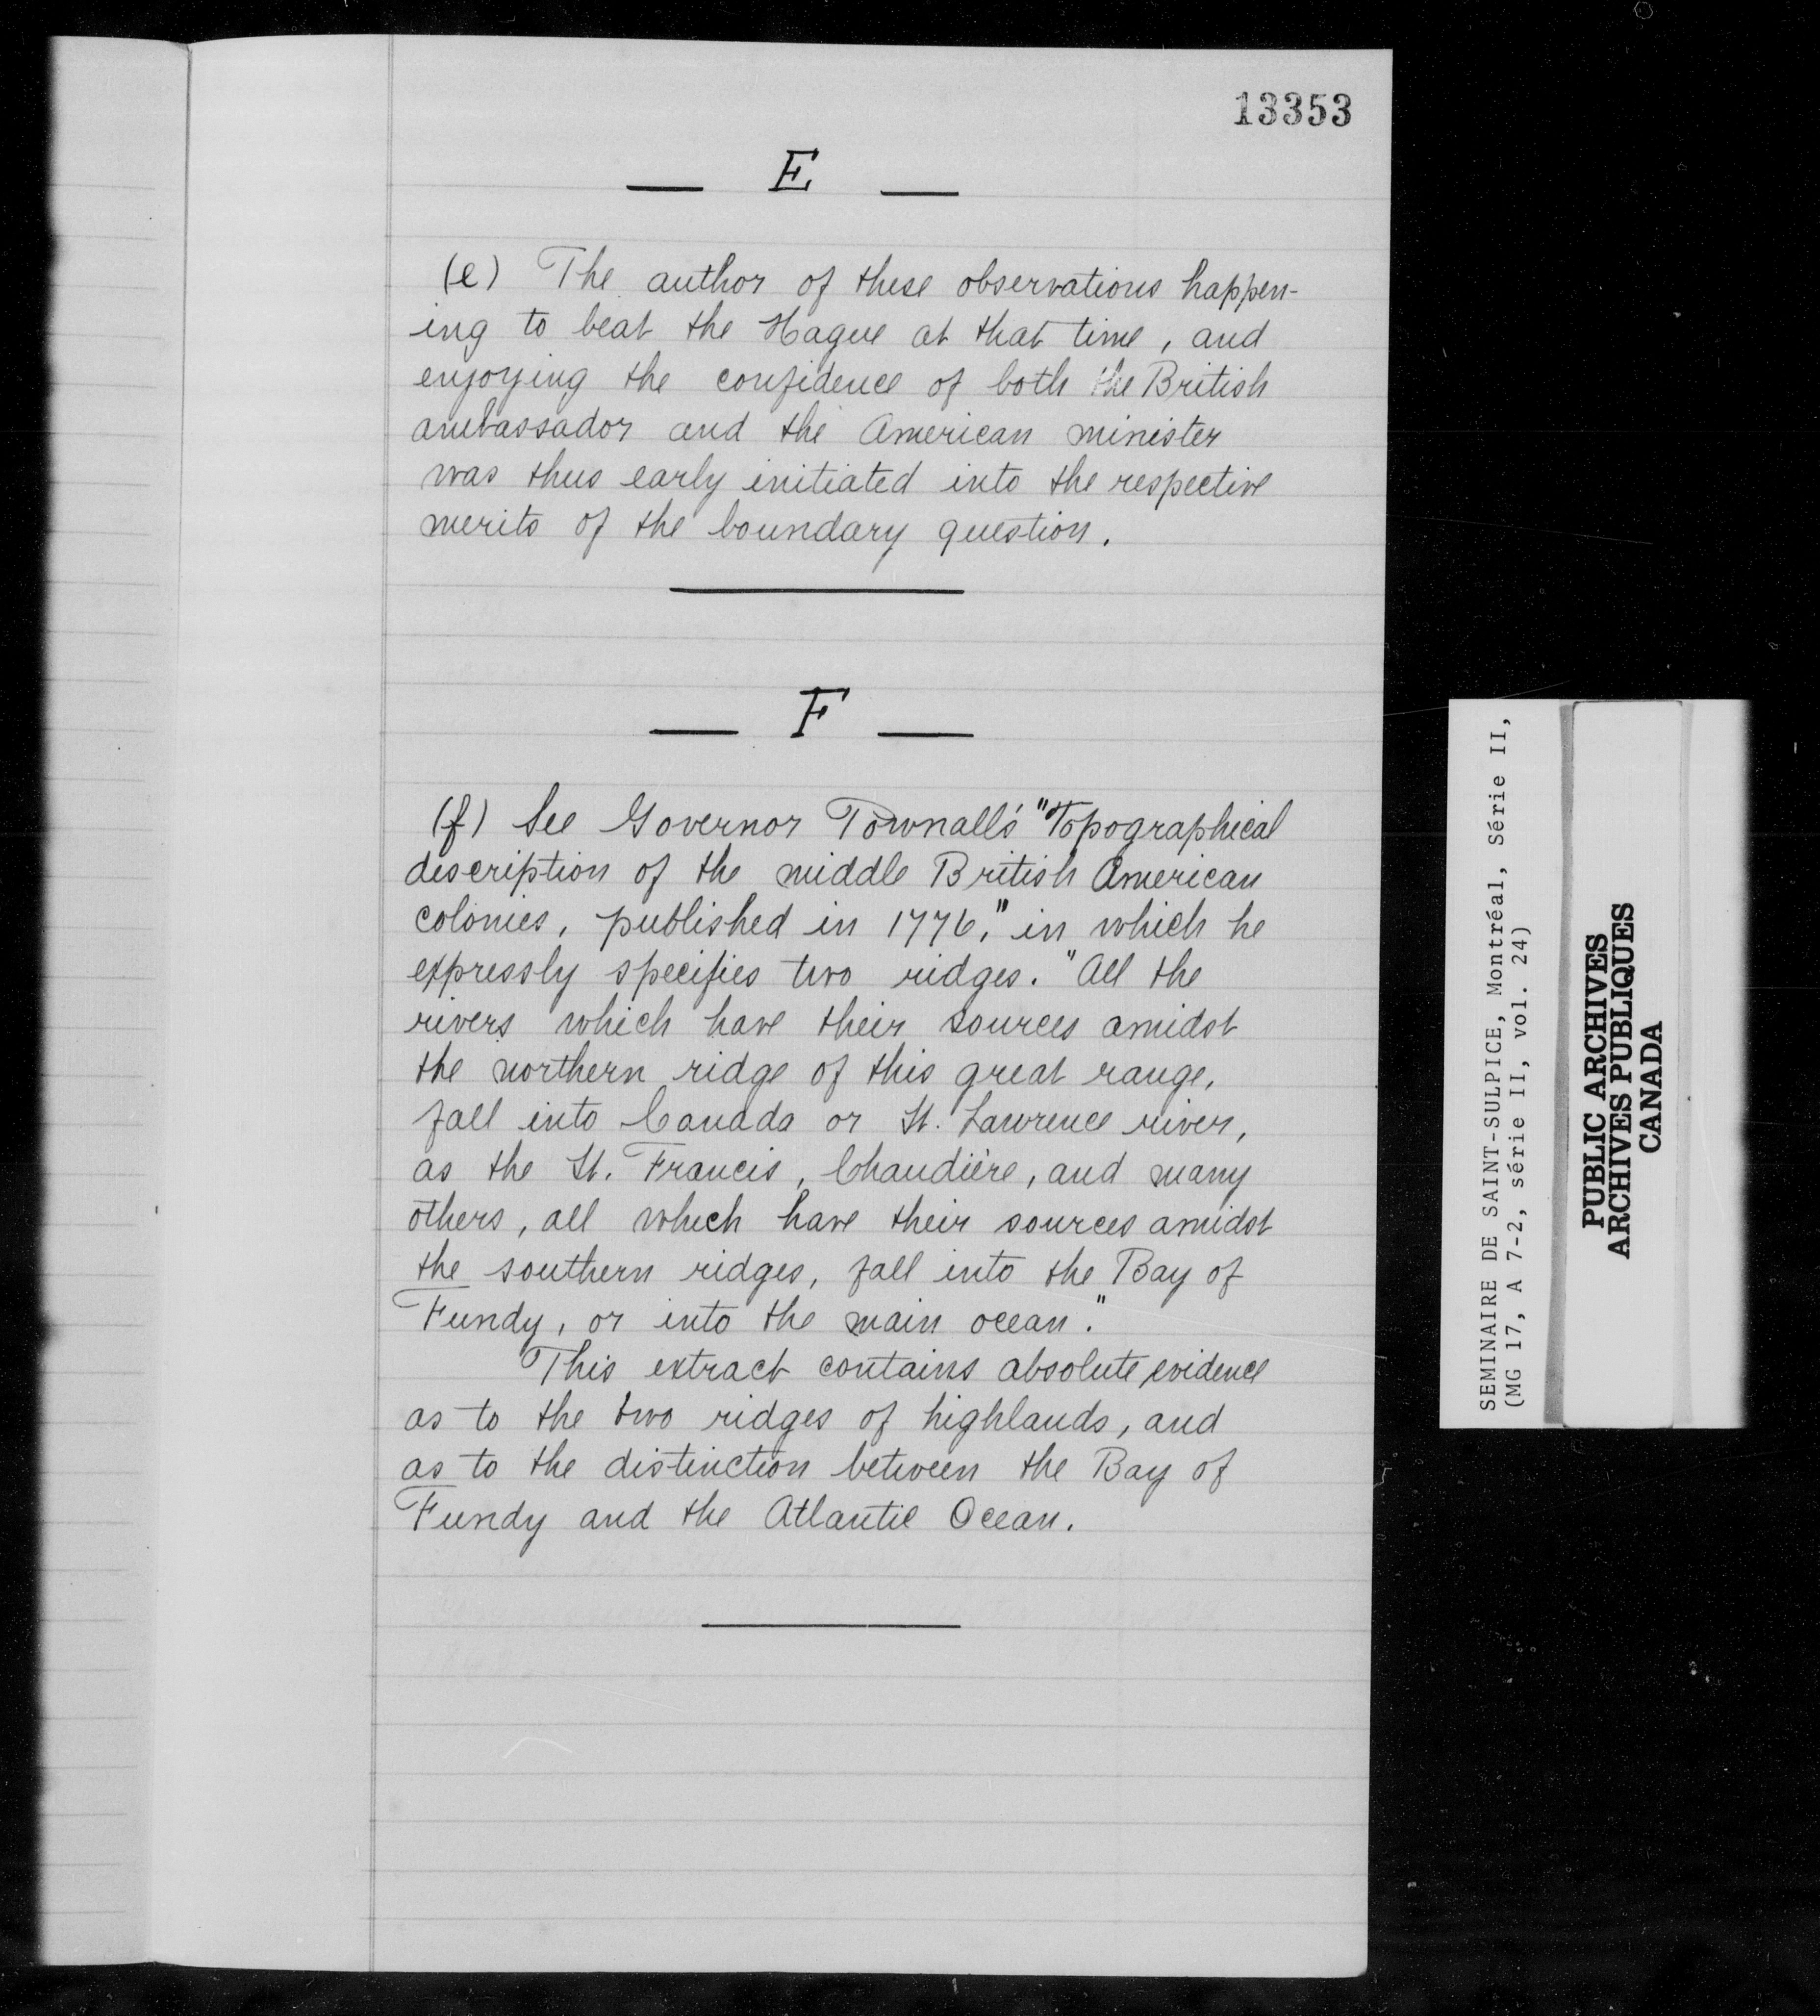 13353
— E —
(e) The author of these observations happen-
ing to beat the Hague at that time, and
enjoying the confidence of both the British
ambassador and the American minister
was thus early initiated into the respective
merits of the boundary question.
— F —
(f) See Governor Pownall's "Topographical
description of the middle British American
colonies, published in 1776," in which he
expressly specifies two ridges. "All the
rivers which have their sources amidst
the northern ridge of this great range,
fall into Canada or St. Lawrence river,
as the St. Francis, Chaudière, and many
others, all which have their sources amidst
the southern ridges, fall into the Bay of
Fundy, or into the main ocean."
This extract contains absolute evidence
as to the two ridges of highlands, and
as to the distinction between the Bay of
Fundy and the Atlantic Ocean.
SEMINAIRE DE SAINT-SULPICE, Montréal, Série II,
(MG 17, A 7-2, série II, vol. 24)
PUBLIC ARCHIVES
ARCHIVES PUBLIQUES
CANADA